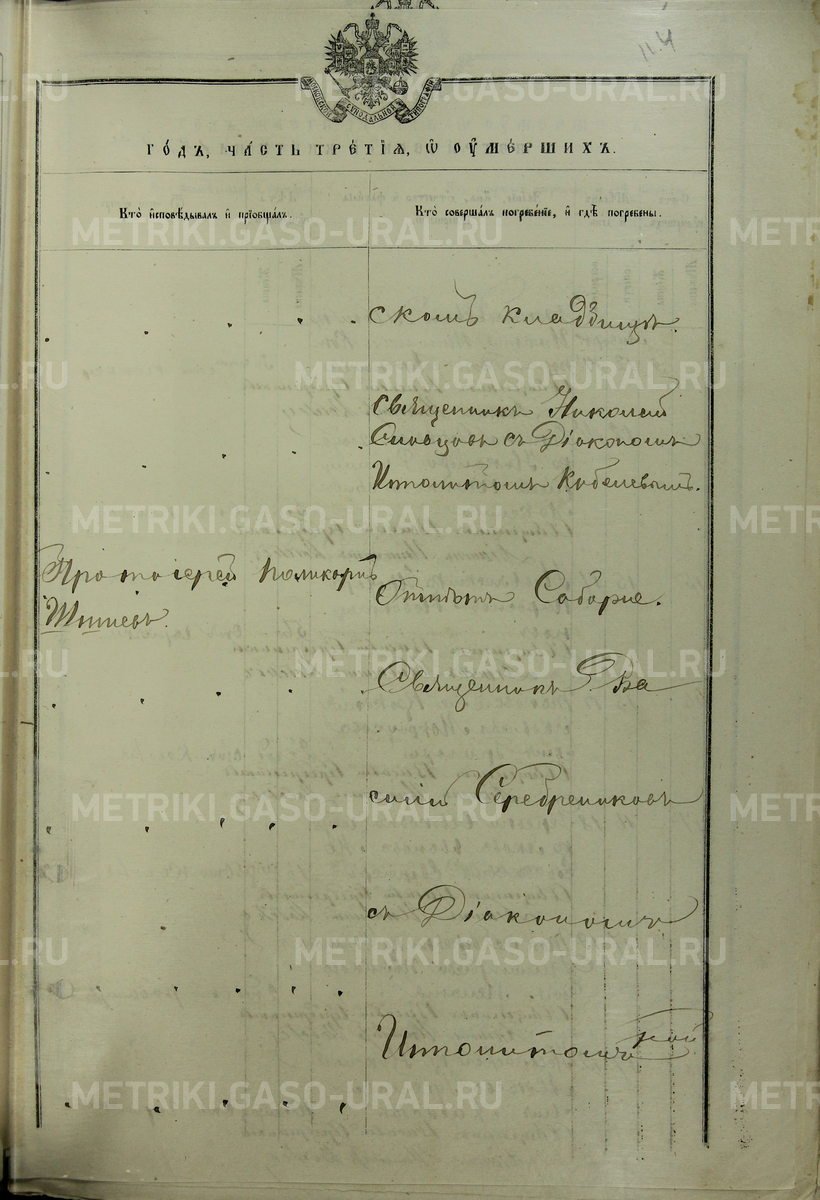 11.4
МОСКОВСКОЙ СѴНОДАЛЬНОЙ ТИПОГРАФІИ
ГО́ДЪ, ЧА́СТЬ ТРЕ́ТІѦ, Ѡ ОУ҆МЕ́РШИХЪ.
Кто̀ и҆сповѣ́дывалъ и҆ прїобща́лъ.
Кто̀ соверша́лъ погребе́нїе, и҆ гдѣ̀ погребены̀.
скомъ кладбищѣ.
Священникъ Николай
Словцовъ съ Діакономъ
Ипполитомъ Кобелевымъ.
Протоіерей Поликарпъ
Отпѣтъ Соборне.
Священникъ Ва
силій Серебрениковъ
съ Діакономъ
Ипполитомъ
METRIKI.GASO-URAL.RU